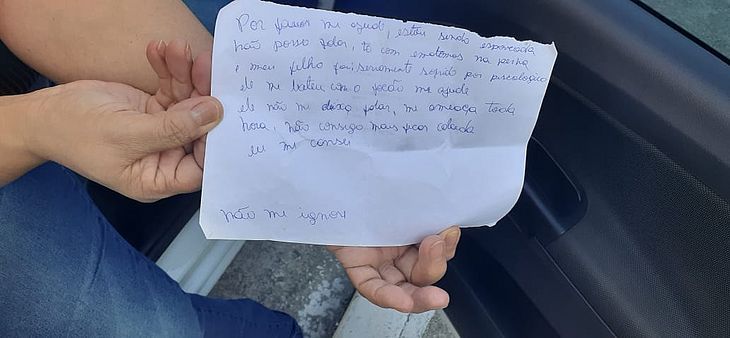 Por favor me ajude, estou sendo espancada
não posso falar, to com ematomas na perna
e meu filho foi seriamente por psicologico
ele me bateu com o facão me ajude
ele não me deixa falar, me ameaça toda
hora, não consigo mais ficar calada
eu me cansei
não me ignore